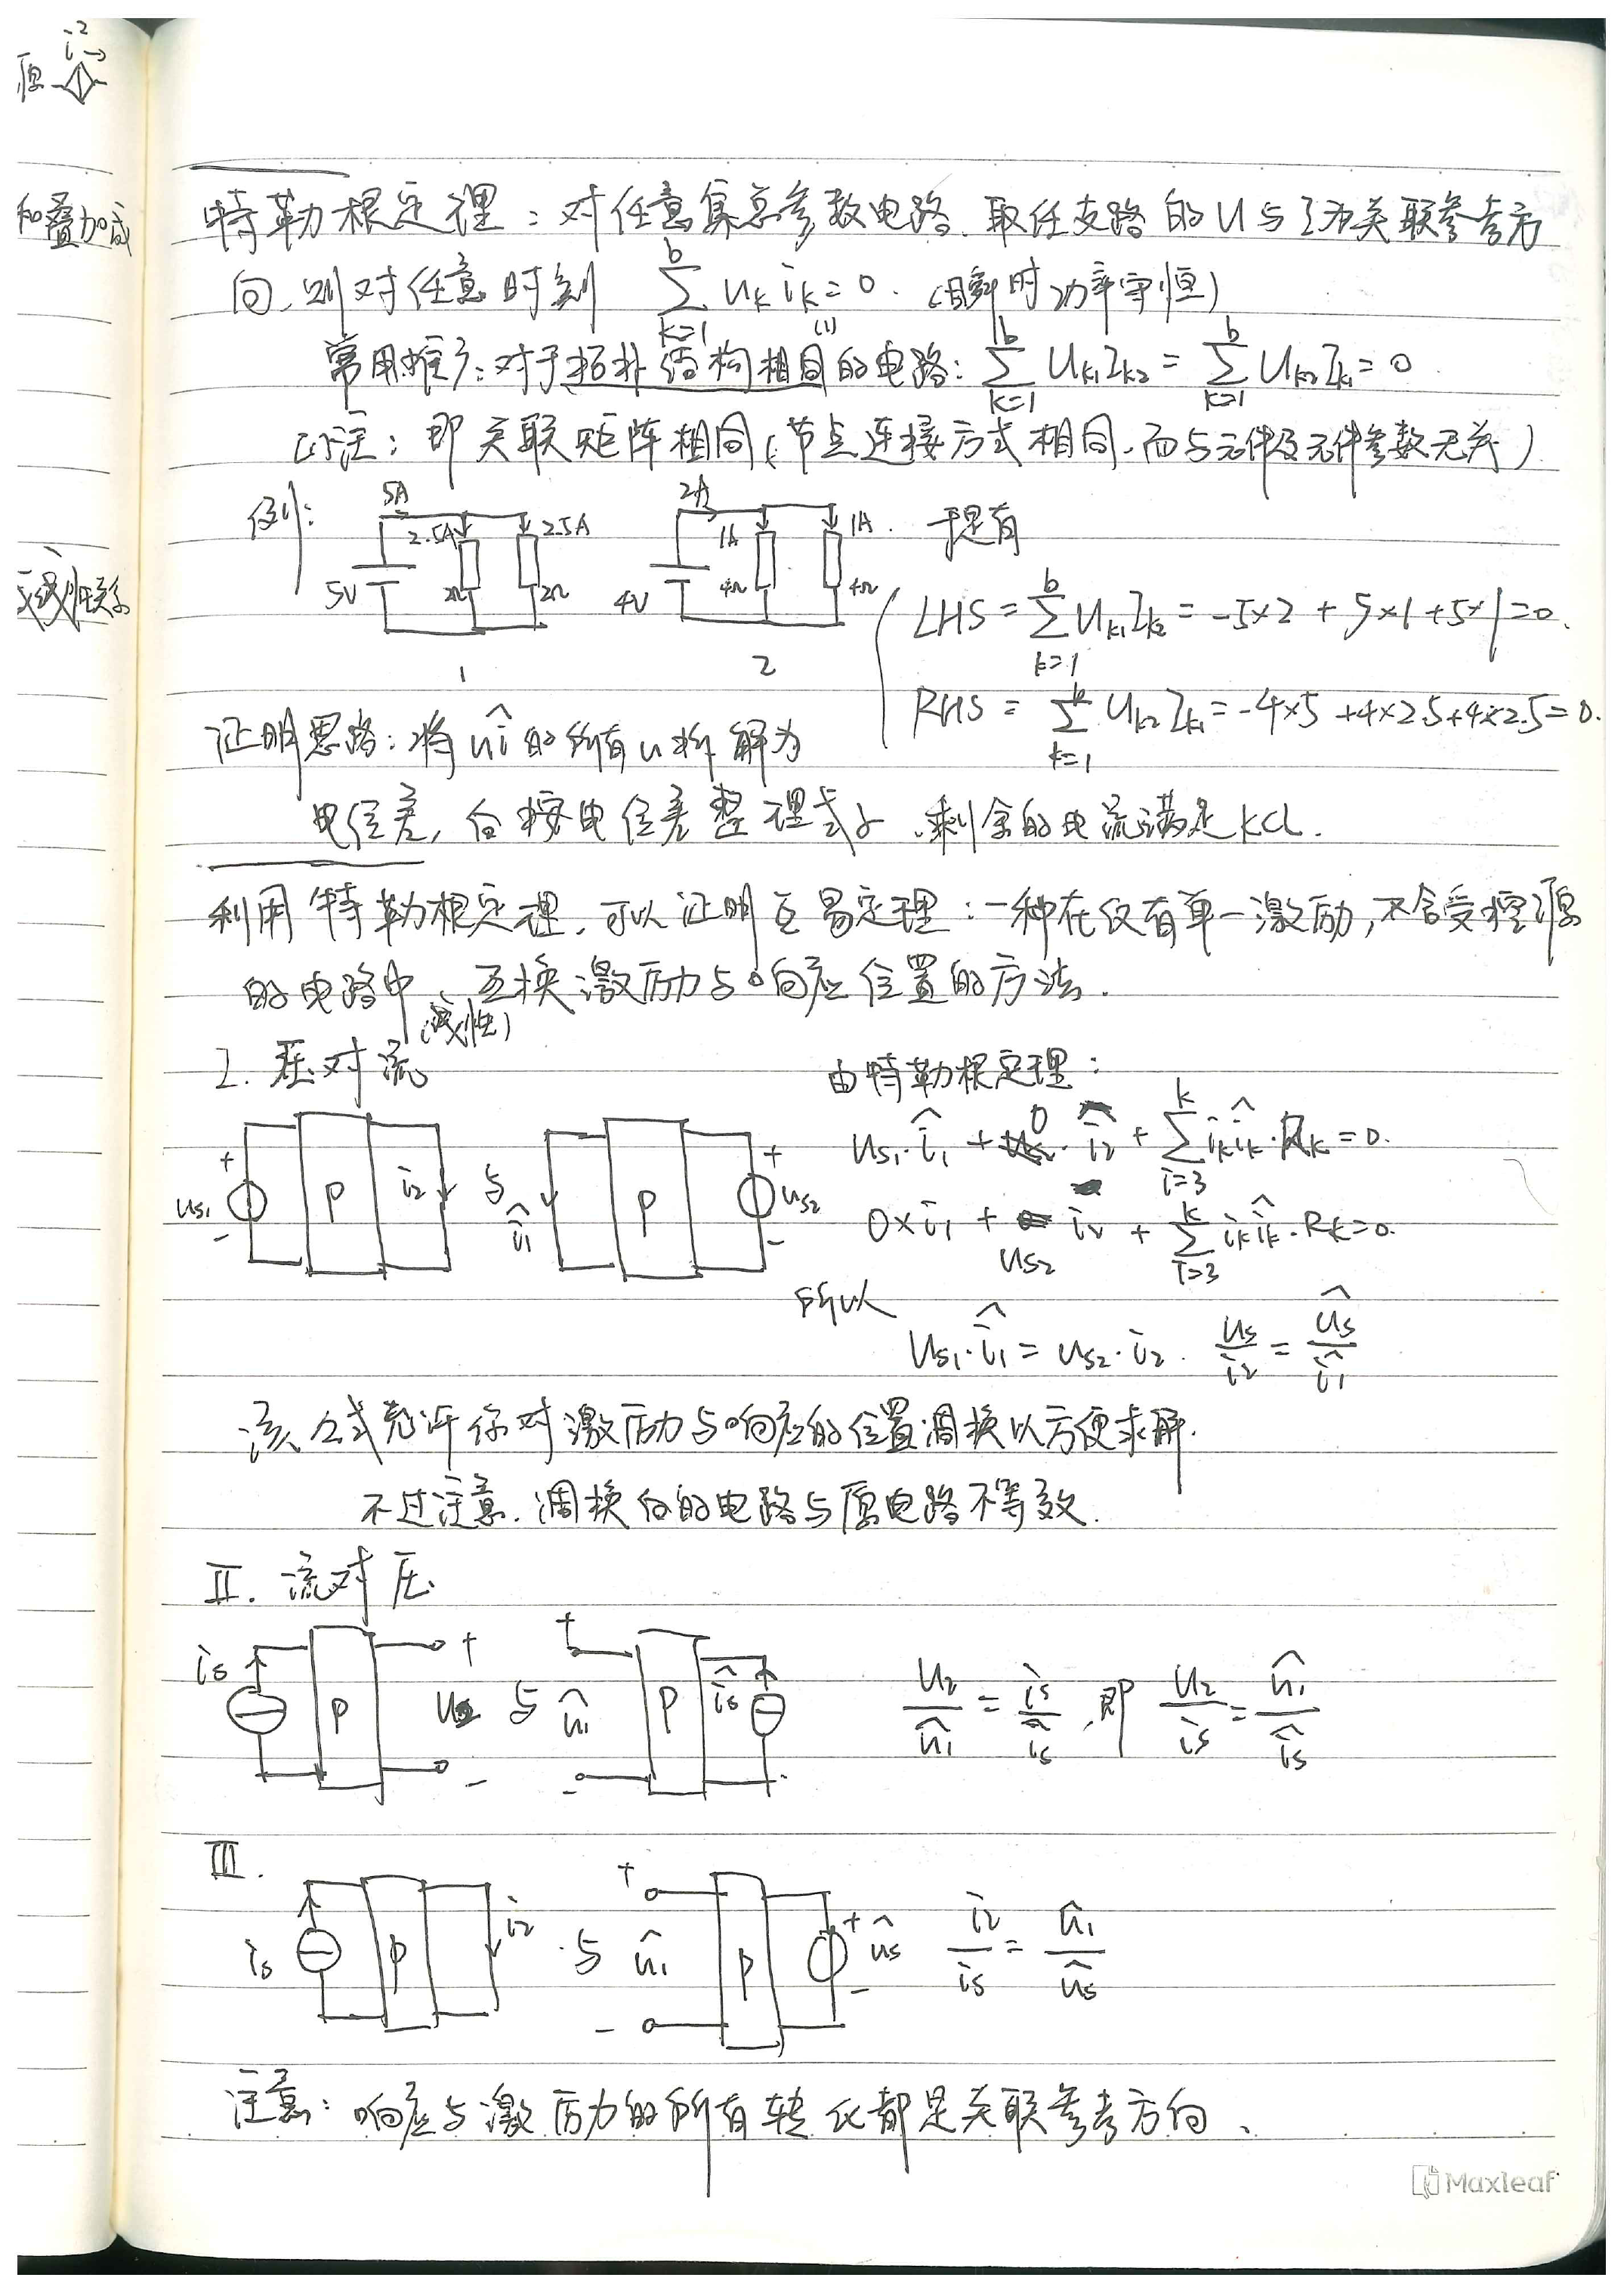 原 i2
和叠加成
线性关系
特勒根定理：对任意集总参数电路、取任支路的U与I为关联参考方
向，则对任意时刻 $\sum_{k=1}^{b} u_k i_k = 0$. (瞬时功率守恒)
常用推广：对于拓扑结构相同(1)的电路：$\sum_{k=1}^{b} U_{k1} I_{k2} = \sum_{k=1}^{b} U_{k2} I_{k1} = 0$
(1)注：即关联矩阵相同(节点连接方式相同，而与元件及元件参数无关)
例：5A 2.5A 2.5A 5V 2Ω 2Ω 1 2A 1A 1A 4V 4Ω 4Ω 2 于是有
LHS = $\sum_{k=1}^{b} U_{k1} I_{k2}$ = -5×2 + 5×1 + 5×1 = 0.
RHS = $\sum_{k=1}^{b} U_{k2} I_{k1}$ = -4×5 + 4×2.5 + 4×2.5 = 0.
证明思路：将 $u\hat{i}$ 的所有u拆解为
电位差，后按电位差整理式子，剩余的电流满足KCL.
利用特勒根定理，可以证明互易定理：一种在仅有单一激励，不含受控源
的电路中(线性)，互换激励与响应位置的方法.
I. 压对流 由特勒根定理：
+ us1 - P i2 与 $\hat{i}_1$ P + us2 -
$u_{s1} \cdot \hat{i}_1 + 0 \cdot \hat{i}_2 + \sum_{i=3}^{k} i_k \hat{i}_k \cdot R_k = 0$.
$0 × i_1 + u_{s2} i_2 + \sum_{i=3}^{k} i_k \hat{i}_k \cdot R_k = 0$.
所以
$u_{s1} \cdot \hat{i}_1 = u_{s2} \cdot i_2$. $\frac{u_s}{i_2} = \frac{\hat{u}_s}{\hat{i}_1}$
该公式允许你对激励与响应的位置调换以方便求解.
不过注意，调换后的电路与原电路不等效.
II. 流对压
is P + u2 - 与 + $\hat{u}_1$ - P $\hat{i}_s$ $\frac{u_2}{\hat{u}_1} = \frac{i_s}{\hat{i}_s}$，即 $\frac{u_2}{i_s} = \frac{\hat{u}_1}{\hat{i}_s}$
III.
is P i2 与 + $\hat{u}_1$ - P + $\hat{u}_s$ - $\frac{i_2}{i_s} = \frac{\hat{u}_1}{\hat{u}_s}$
注意：响应与激励的所有转化都是关联参考方向、
Maxleaf